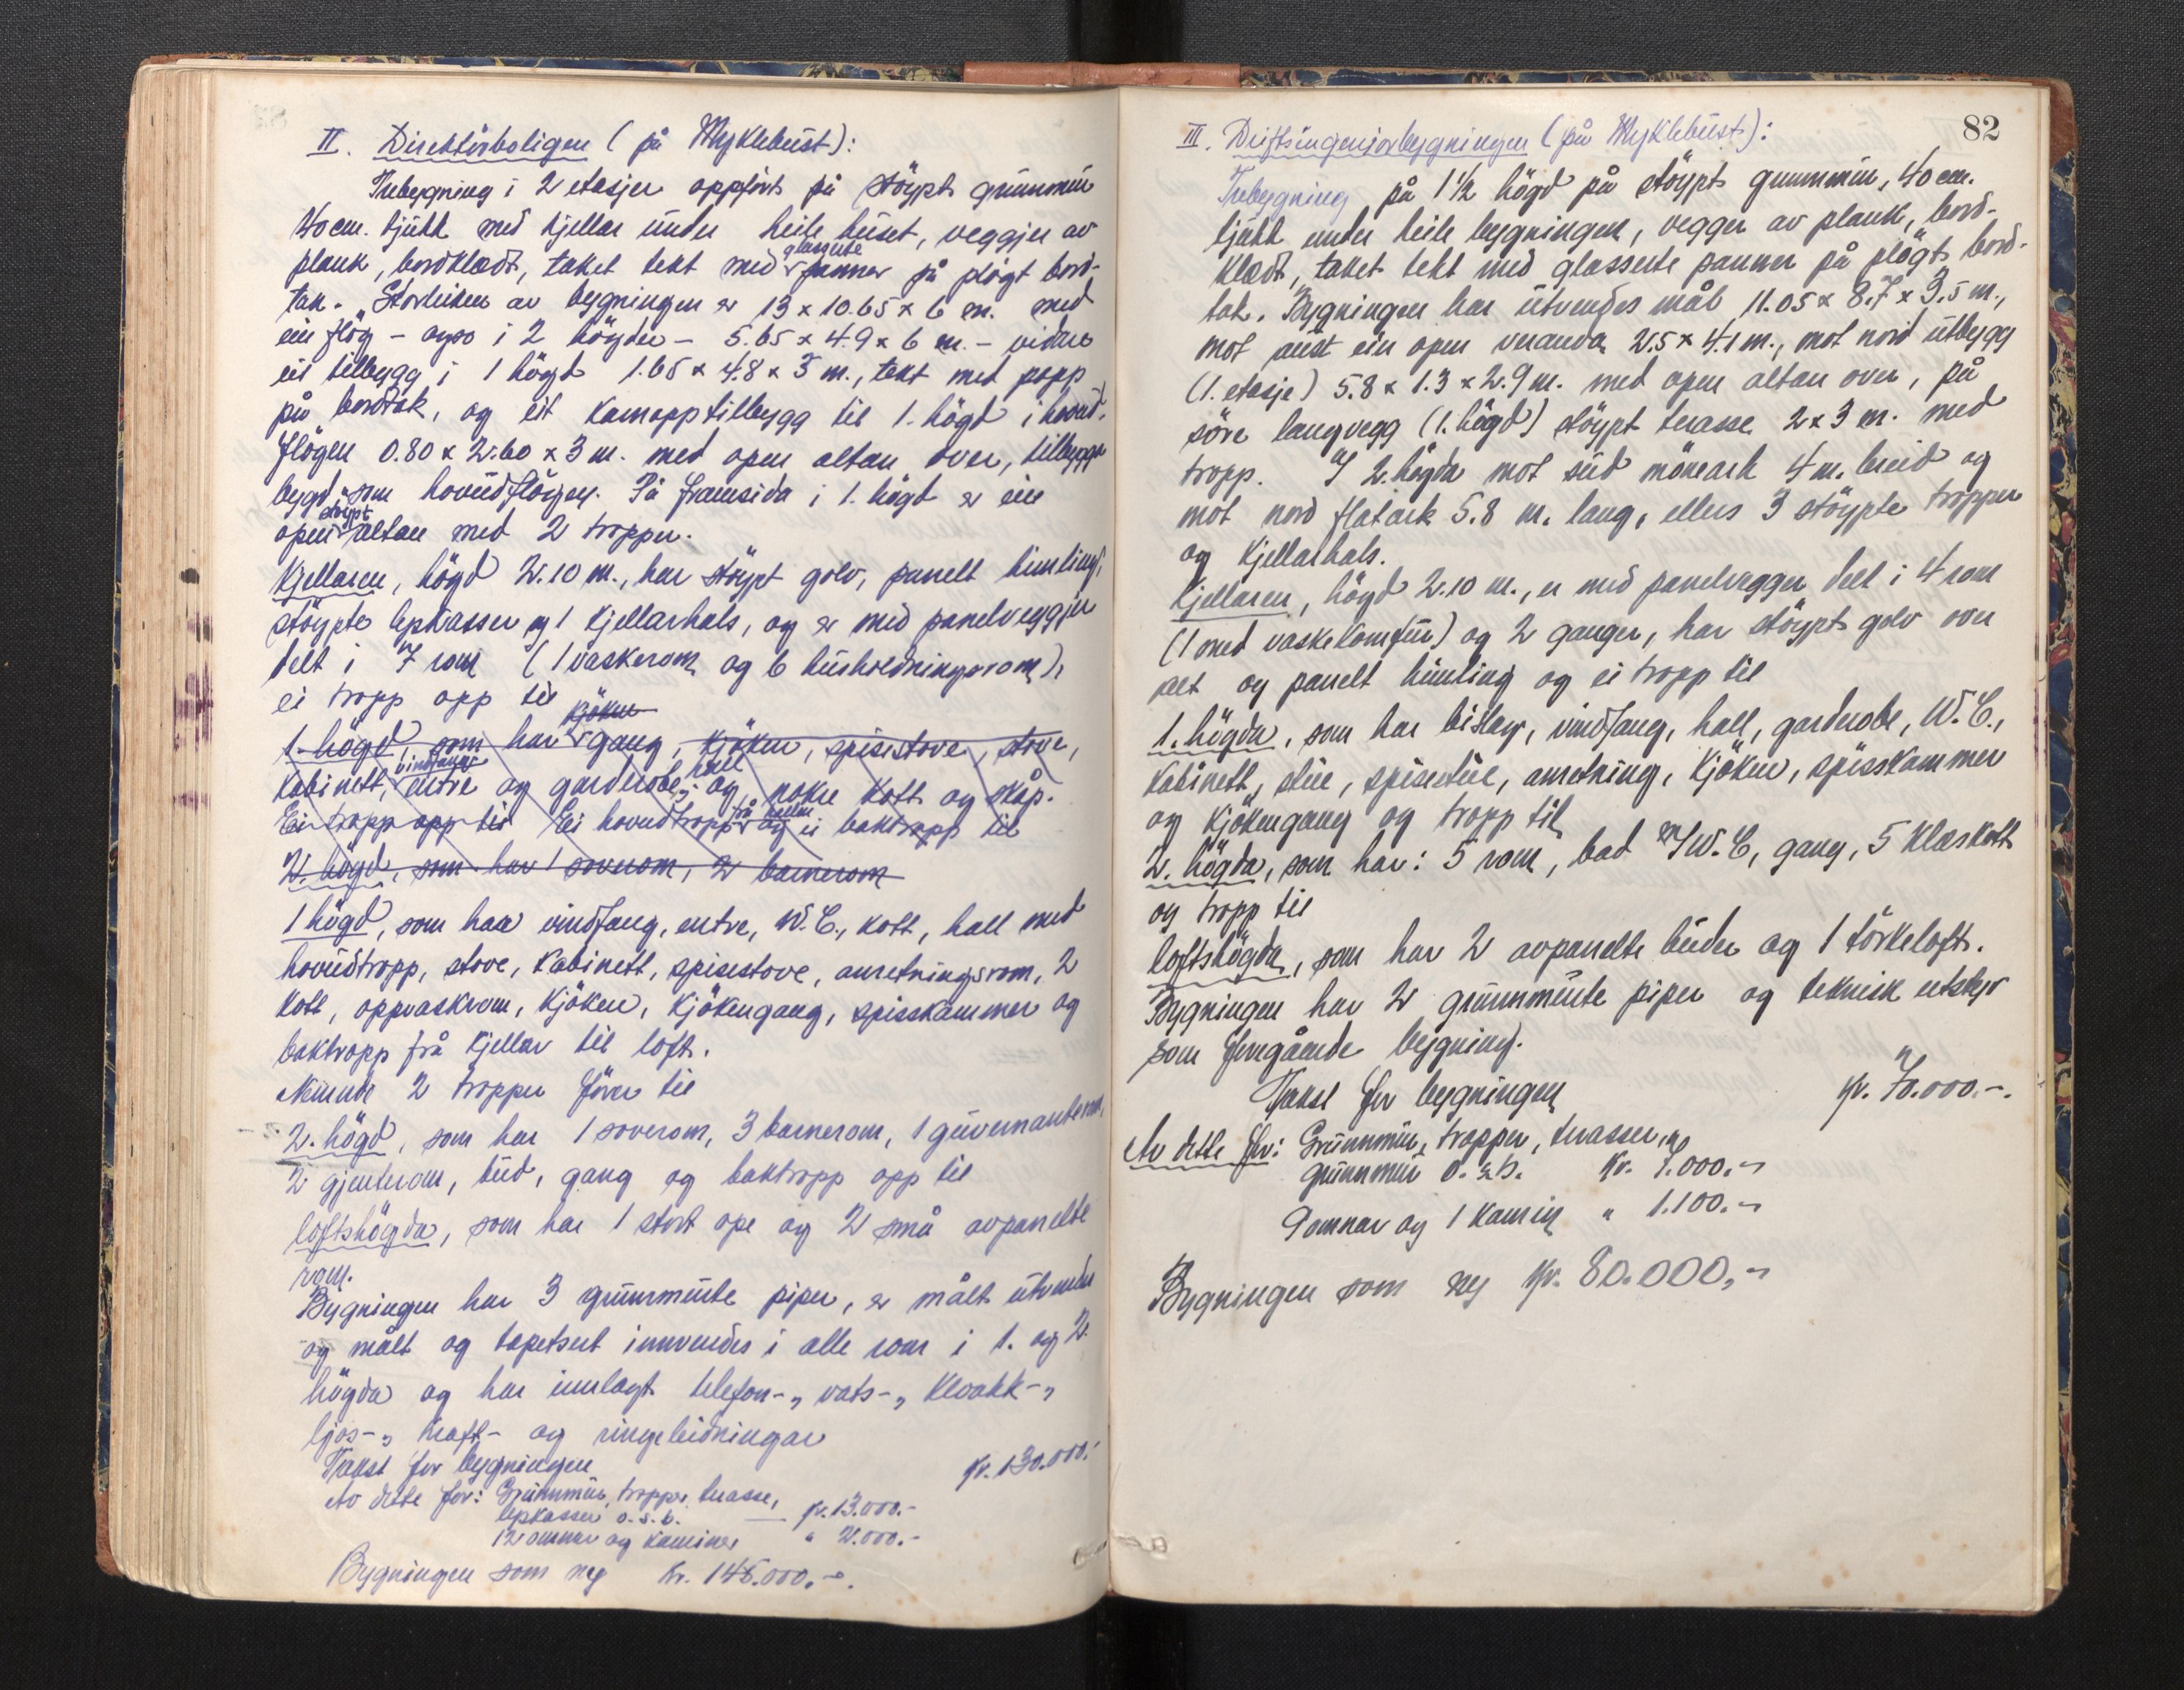 II. Direktörboligen (på Myklebust):
Trebygning i 2 etasjer oppfört på støypt grunnmur
40 cm. tjukk med kjellar under heile huset, veggjer av
plank, bordklædt, taket tekt med glasserte panner på pløgt bord-
tak. Storleiken av bygningen er 13 x 10.65 x 6 m. med
ein fløg - også i 2 högder - 5.65 x 4.9 x 6 m. - vidare
eit tilbygg i 1 högd 1.65 x 4.8 x 3 m., tekt med papp
på bordtak, og eit karnapptilbygg til 1. högd i hovud-
flögen 0.80 x 2.60 x 3 m. med open altan over, tilbygga
bygd som hovudflögen. På framsida i 1. högd er ein
open støypt altan med 2 tropper.
Kjellaren, högd 2.10 m., har støypt golv, panelt himling,
støypte lyskasser og 1 kjellarhals, og er med panelveggjer
delt i 7 rom (1 vaskerom og 6 husholdningsrom),
ei tropp opp til
1. högd, som har kjöken gang, kjöken, spisestove, stove,
kabinett, vindfang entre og garderobe, hall og nokre kott og skåp.
Ei tropp opp til Ei hovudtropp frå hallen og ei baktropp til
2. högd, som har 1 soverom, 2 barnerom
1 högd, som har vindfang, entre, W.C., kott, hall med
hovudtropp, stove, kabinett, spisestove, anretningsrom, 2
kott, oppvaskrom, kjöken, kjökengang, spisskammer og
baktropp frå kjellar til loft.
Nemnde 2 tropper förer til
2. högd, som har 1 soverom, 3 barnerom, 1 guvernanterom,
2 gjenterom, bud, gang og baktropp opp til
loftshögda, som har 1 stort ope og 2 små avpanelte
rom.
Bygningen har 3 grunnmurte piper, er målt utvendes
og målt og tapetsert innvendes i alle rom i 1. og 2.
högda og har innlagt telefon-, vats-, kloakk-,
ljos-, kraft- og ringeleidningar
Takst for bygningen kr. 130.000.-
Av dette for: Grunnmur, tropper, terasse,
lyskasser o.s.b. kr. 13.000.-
12 omnar og kaminer " 2.000.-
Bygningen som ny kr. 145.000.-.
82
III. Driftsingeniørbygningen (på Myklebust):
Trebygning på 1 1/2 högd på støypt grunnmur, 40 cm.
tjukk under heile bygningen, vegger av plank, bord-
klædt, taket tekt med glasserte panner på plögt bord-
tak. Bygningen har utvendes mål 11.05 x 8.7 x 3.5 m.,
mot aust ein open veranda 2.5 x 4.1 m., mot nord utbygg
(1. etasje) 5.8 x 1.3 x 2.9 m. med open altan over, på
søre langvegg (1. högd) støypt terasse 2 x 3 m. med
tropp. I 2. högda mot sud mönsark 4 m. breid og
mot nord flatark 5.8 m. lang, ellers 3 støypte tropper
og kjellarhals.
Kjellaren, högd 2.10 m., er med panelvegger delt i 4 rom
(1 med vaskekomfur) og 2 ganger, har støypt golv over
alt og panelt himling og ei tropp til
1. högda, som har bislag, vindfang, hall, garderobe, W.C.,
kabinett, stue, spisestue, anretning, kjöken, spisskammer
og kjökengang og tropp til
2. högda, som har: 5 rom, bad m/W.C, gang, 5 klæskott
og tropp til
loftshögda, som har 2 avpanelte buder og 1 tørkeloft.
Bygningen har 2 grunnmurte piper og teknisk utstyr
som foregående bygning.
Takst for bygningen kr. 70.000.-.
Av dette for: Grunnmur, tropper, terasser,
grunnmur o.s.b. kr. 7.000.-
9 omnar og 1 kamin " 1.100.-
Bygningen som ny kr. 80.000,-